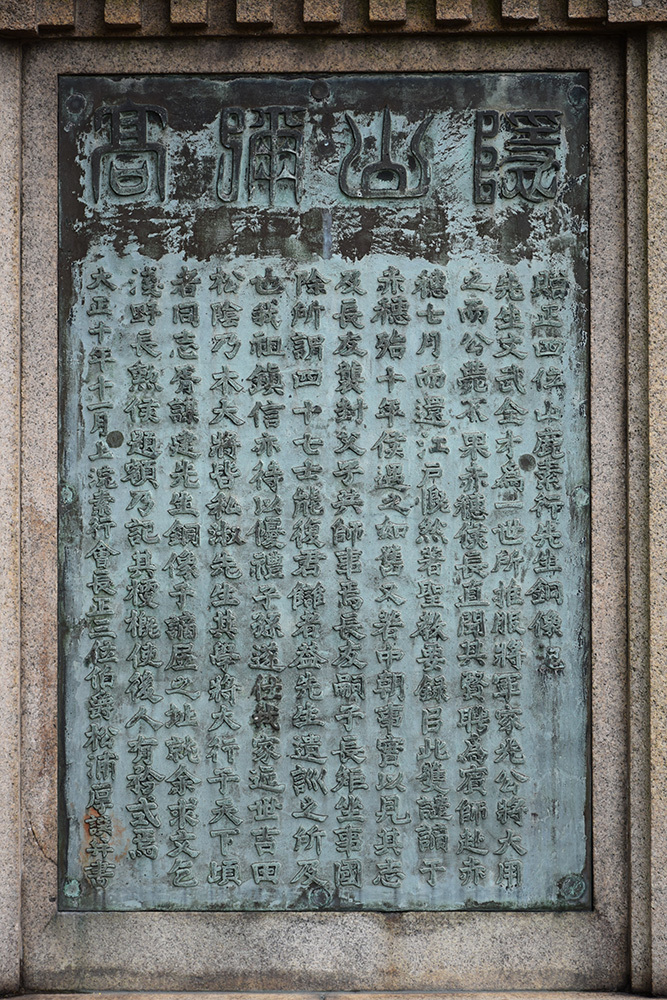 隱山彌高
贈正四位山鹿素行先生銅像記
先生文武全才為一世所推服將軍家光公將大用
之而公薨不果赤穗侯長直聞其賢聘為賓師赴赤
穗七月而還江戶慨然著聖教要錄㠯此獲譴謫于
赤穗殆十年侯遇之如舊又著中朝事實以見其志
及長友襲封父子共師事焉長友嗣子長矩坐事國
除所謂四十七士能復君讎者蓋先生遺訓之所及
也我祖鎮信亦待以優禮子孫遂仕我家近世吉田
松陰乃木大將皆私淑先生其學將大行于天下頃
者同志胥謀建先生銅像于謫居之址就余求文乞
淺野長勲侯題額乃記其梗概使後人有矜式焉
大正十年十一月上浣素行會長正三位伯爵松浦厚撰并書